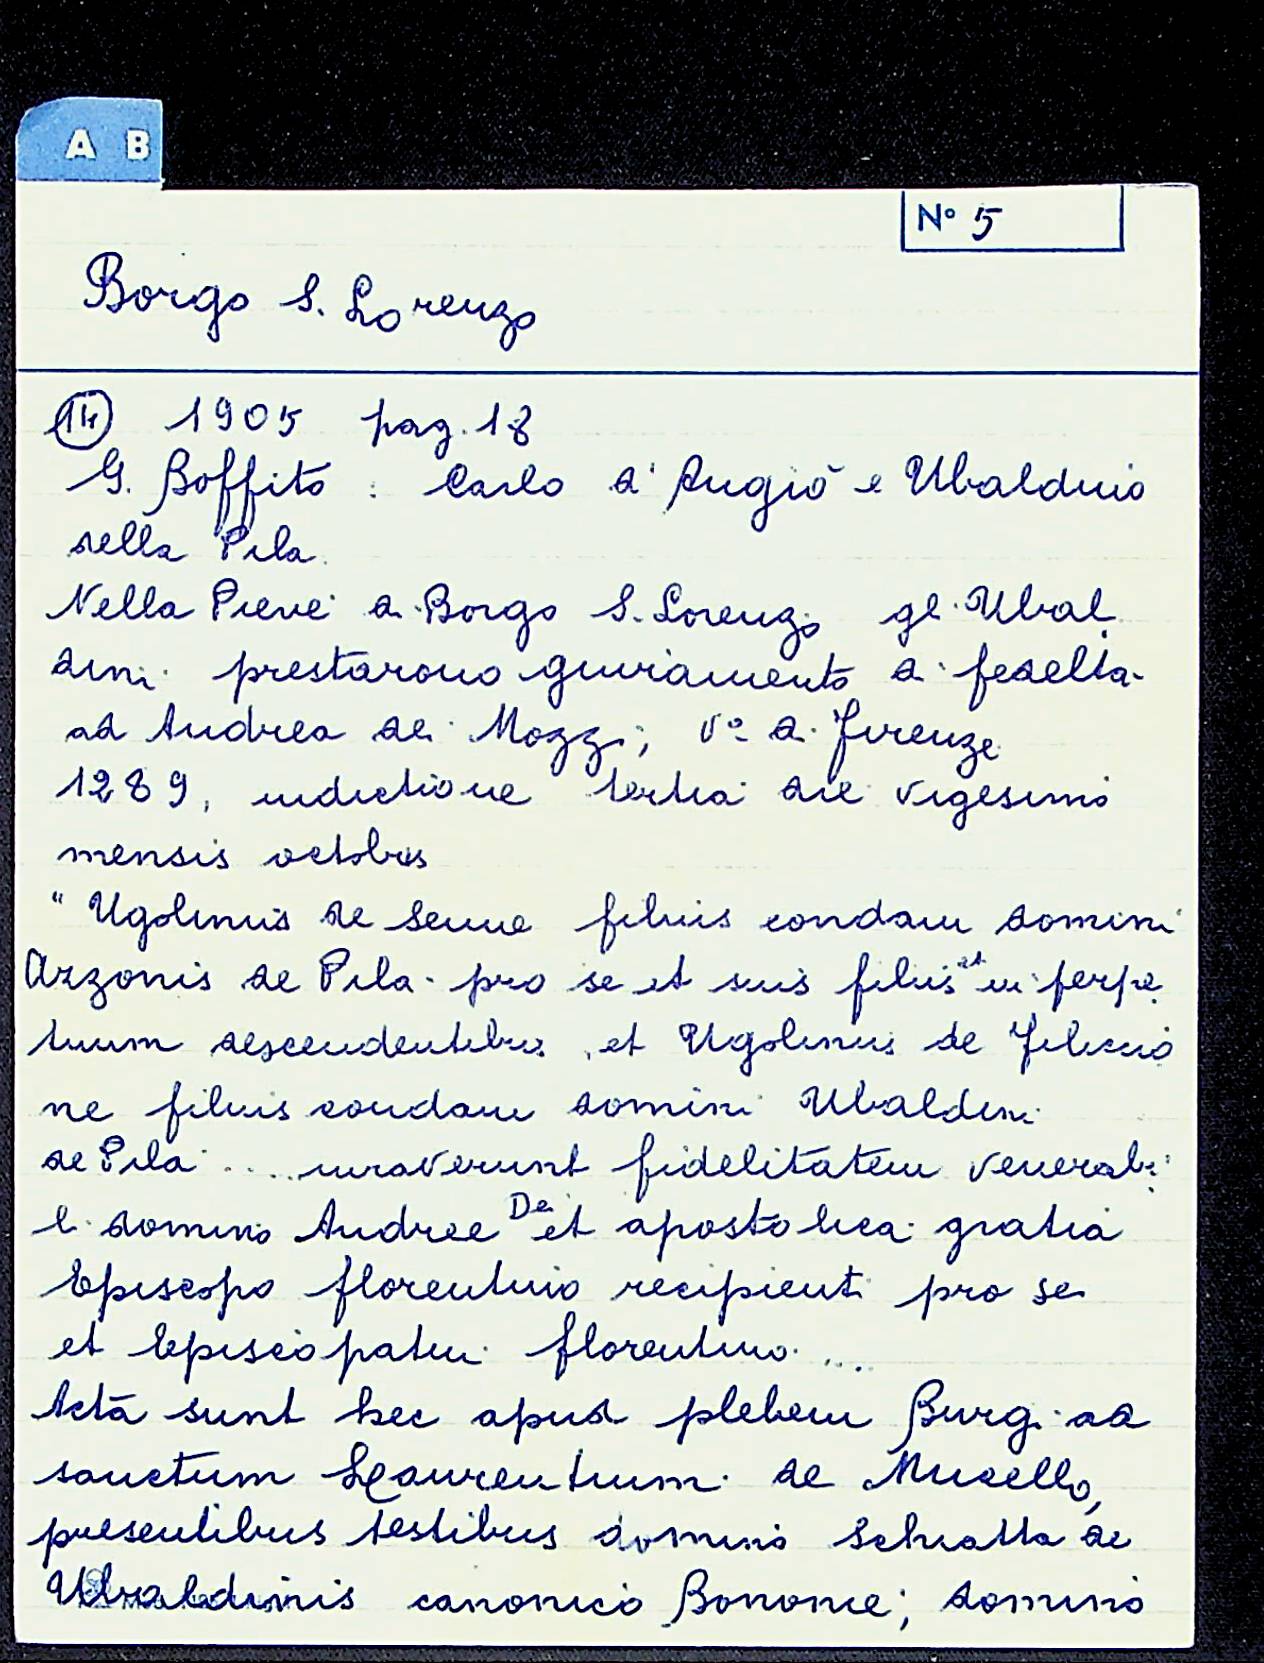 A B
N° 5
Borgo S. Lorenzo
14 1905 pag. 18
G. Boffito : Carlo d'Angiò e Ubaldino
della Pila.
Nella Pieve di Borgo S. Lorenzo gli Ubal
dini prestarono giuramento di fedeltà
ad Andrea dei Mozzi, V° di Firenze
1289, indictione tertia die vigesimo
mensis octobris
"Ugolinus de Senne filius condam domini
Azzonis de Pila pro se et suis filiis et in perpe
tuum descendentibus et Ugolinus de Feliccio
ne filius condam domini Ubaldini
de Pila .... iuraverunt fidelitatem venerabi
li domino Andree Dei et apostolica gratia
Episcopo florentino recipienti pro se
et Episcopatui florentino....
Acta sunt hec apud plebem Burgi ad
sanctum Laurentium de Mucello,
presentibus testibus domino Schiatta de
Ubaldinis canonico Bononie, domino